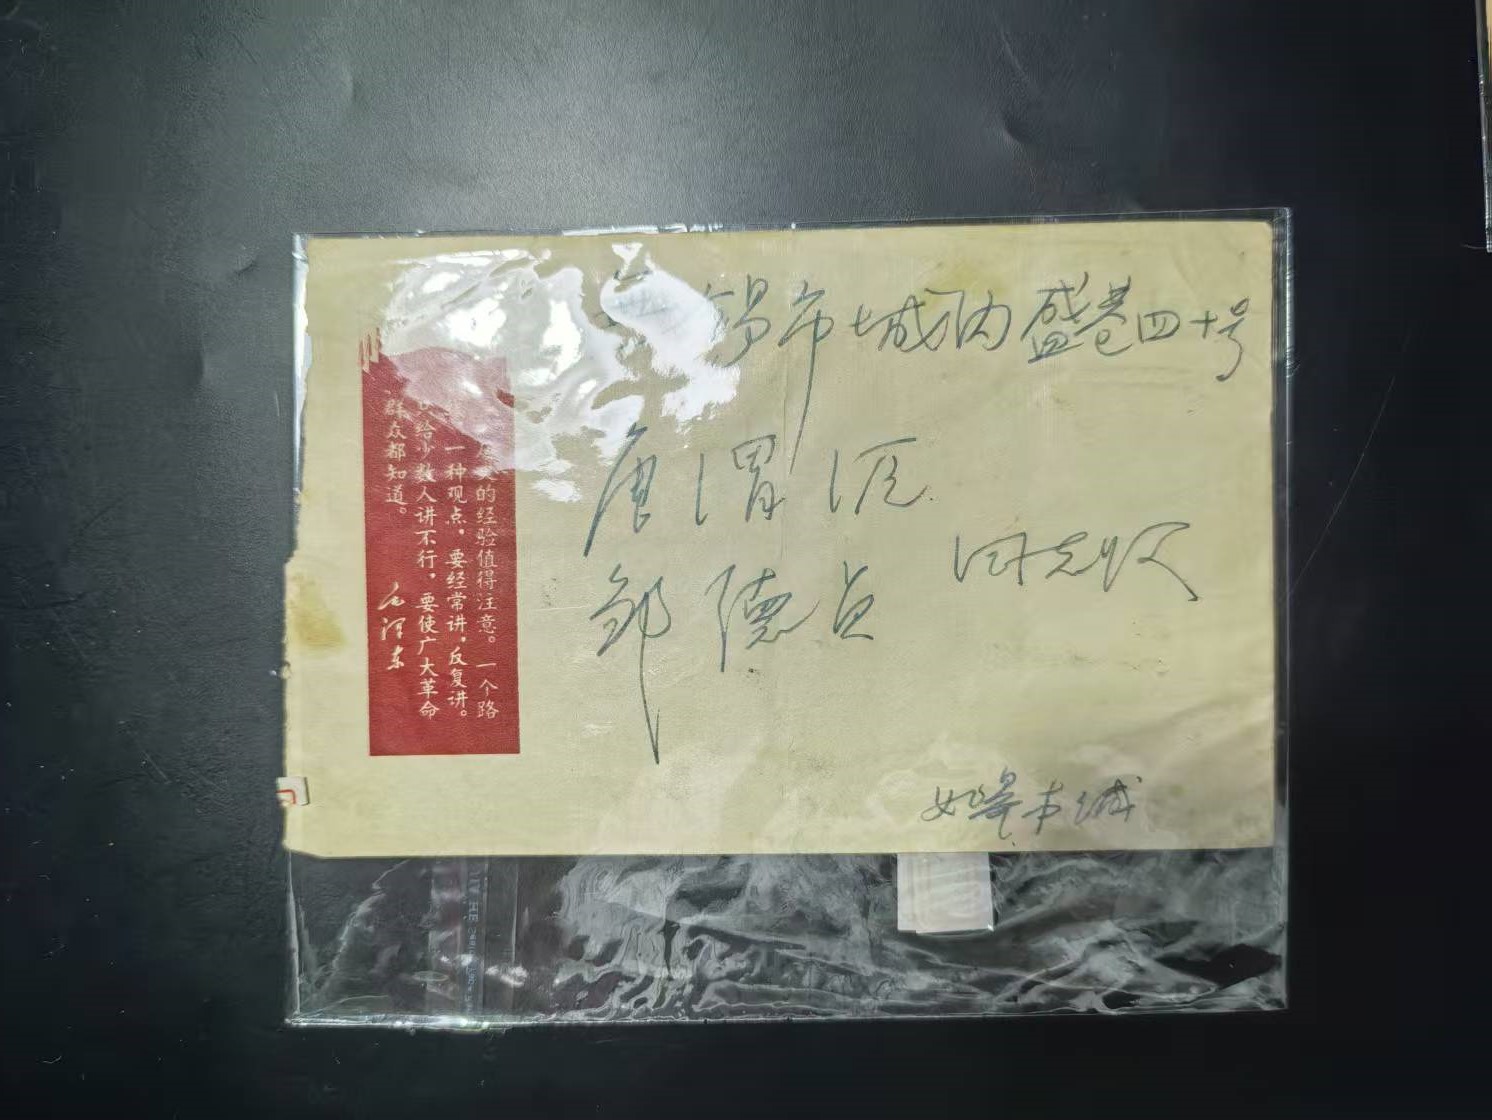 锡市城内盛巷四十号
唐渭滨
邹德贞
同志收
的经验值得注意。一个路
一种观点，要经常讲，反复讲。
给少数人讲不行，要使广大革命
群众都知道。
毛泽东
本城